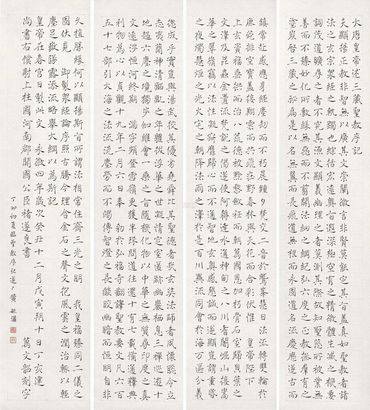 大唐皇帝述三藏聖教序記
夫顯揚正教非智無以廣其文崇闡微言非賢莫能定其旨蓋真如聖教者諸
法之玄宗衆經之軌躅也綜括宏遠奧旨遐深極空有之精微體生滅之機要
詞茂道曠尋之者不究其源文顯義幽理之者莫測其際故知聖慈所被業無
善而不臻妙化所敷緣無惡而不翦開法網之綱紀弘六度之正教拯群有之
塗炭啓三藏之秘扃是以名無翼而長飛道無根而永固道名流慶歷遂古而
鎮常赴感應身經塵劫而不朽晨鐘夕梵交二音於鷲峰慧日法流轉雙輪於
鹿苑排空寶蓋接翔雲而共飛莊野春林與天花而合彩伏惟 皇帝陛下
上玄資福垂拱而治八荒德被黔黎斂衽而朝萬國恩加朽骨石室歸貝葉之
文澤及昆蟲金匱流梵說之偈遂使阿耨達水通神甸之八川耆闍崛山接嵩
華之翠嶺竊以法性凝寂靡歸心而不通智地玄奧感懇誠而遂顯豈謂重昏
之夜燭慧炬之光火宅之朝降法雨之澤於是百川異流同會於海萬區分義
總成乎實豈與湯武校其優劣堯舜比其聖德者哉玄奘法師者夙懷聰令立
志夷簡神清齠齔之年體拔浮華之世凝情定室匿跡幽巖棲息三禪巡遊十
地超六塵之境獨步伽維會一乘之旨隨機化物以中華之無質尋印度之真
文遠涉恒河終期滿字頻登雪嶺更獲半珠問道往還十有七載備通釋典
利物爲心以貞觀十九年二月六日奉 敕於弘福寺翻譯聖教要文凡六百
五十七部引大海之法流洗塵勞而不竭傳智燈之長焰皎幽闇而恒明自非
久植勝緣何以顯揚斯旨所謂法相常住齊三光之明 我皇福臻同二儀之
固伏見 御製衆經論序照古騰今理含金石之聲文抱風雲之潤治輒以輕
塵足岳墜露添流略舉大綱以爲斯記
皇帝在春宮日製此文 永徽四年歲次癸丑十二月戊寅朔十日丁亥建
尚書右僕射上柱國河南郡開國公臣褚遂良書 萬文韶刻字
丁卯初夏臨聖教序記